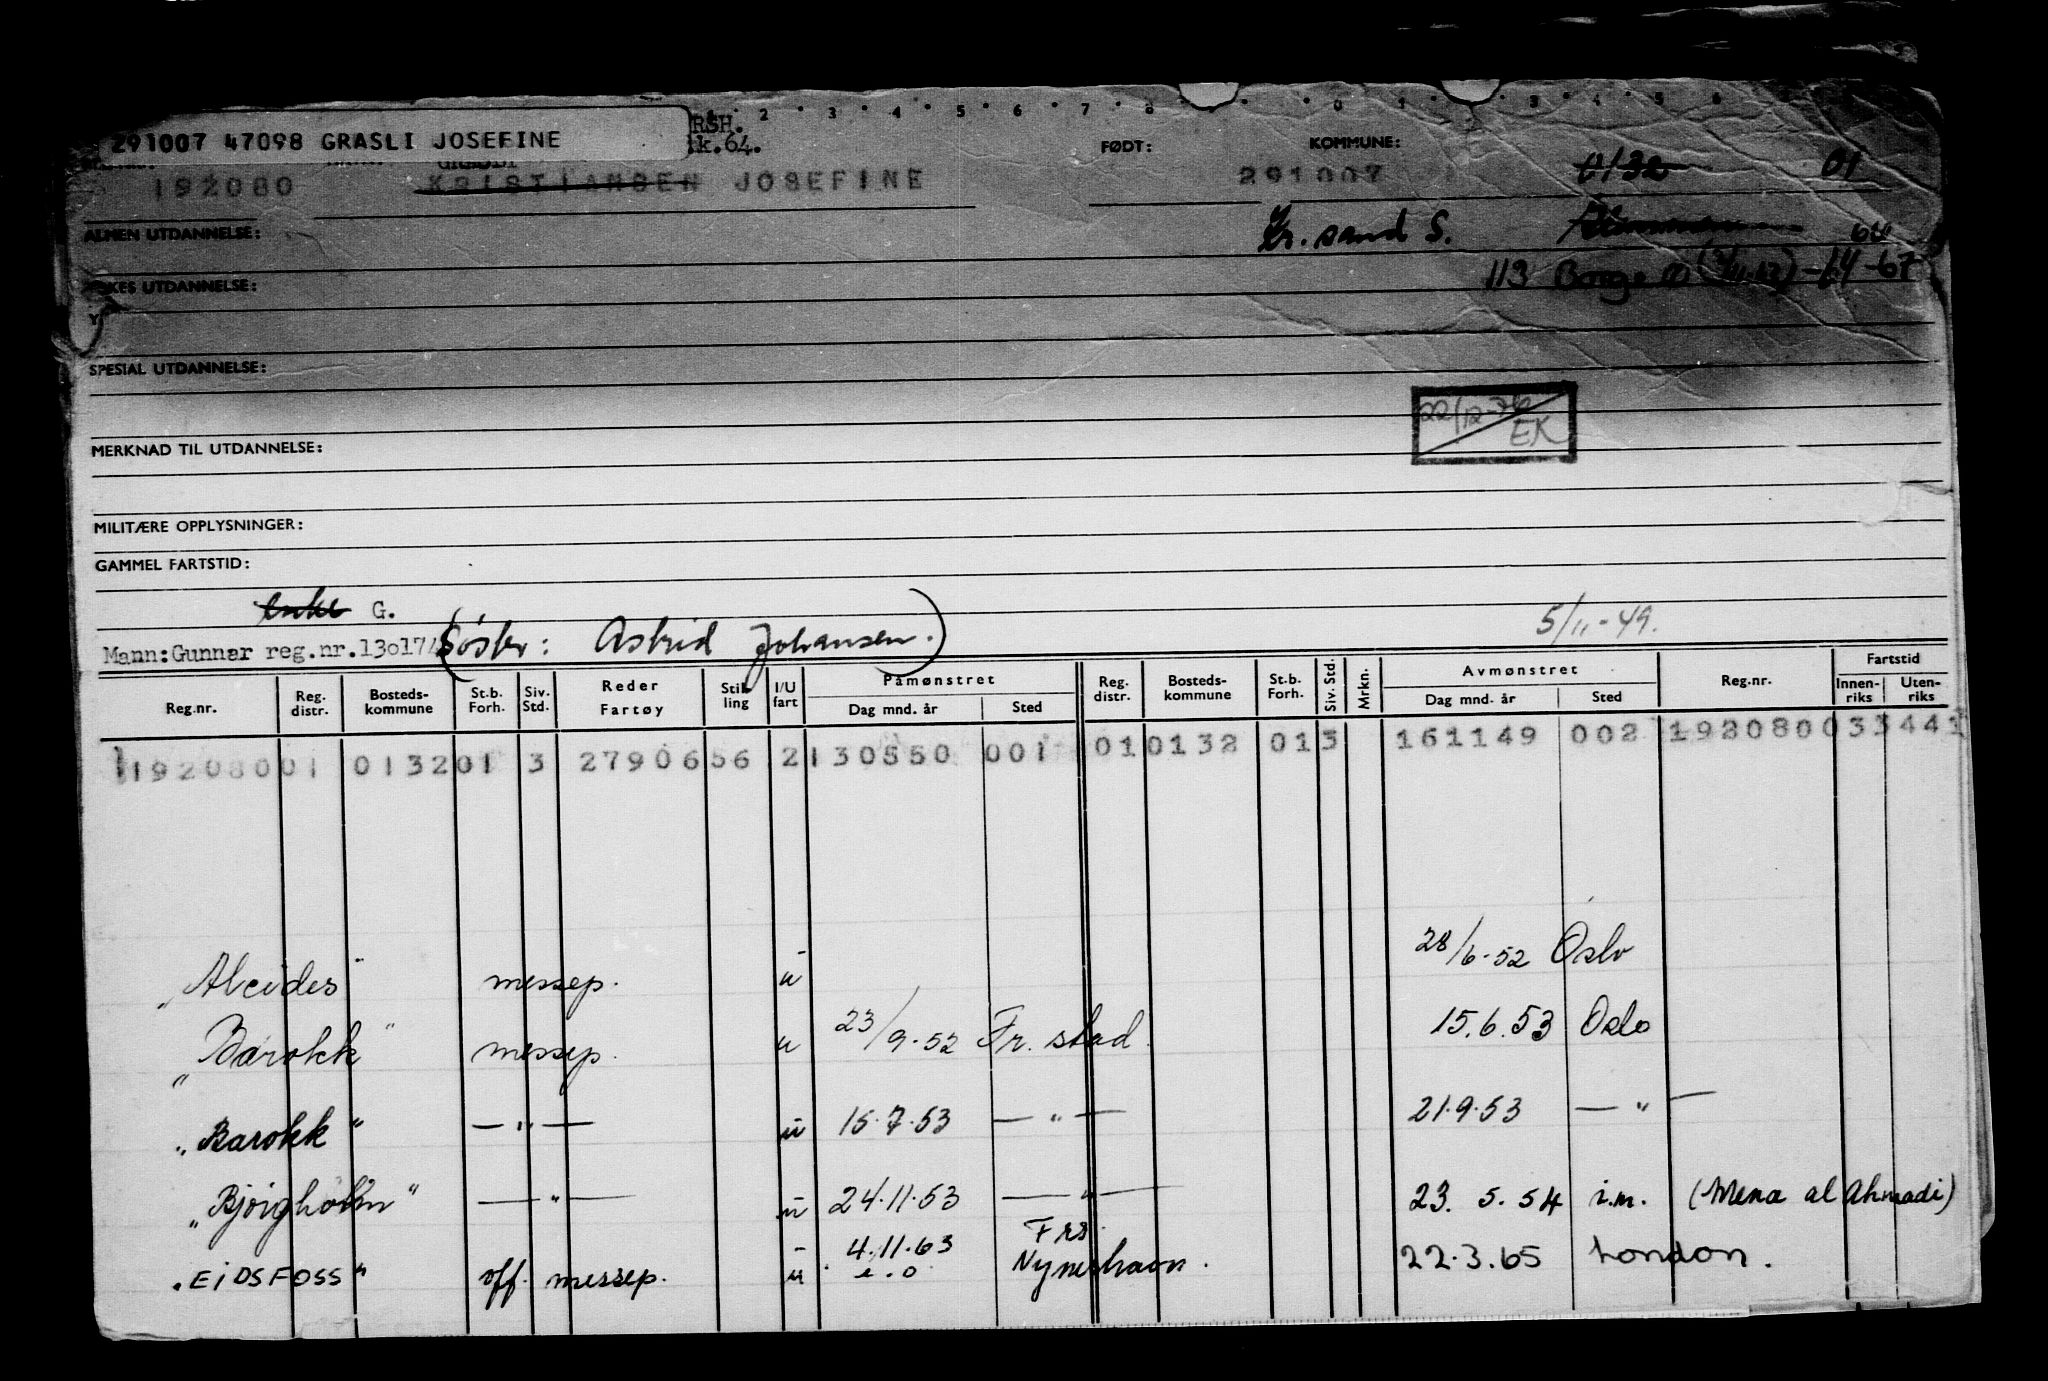 291007 47098 GRASLI JOSEFINE RSH.
k.64.
FØDT: KOMMUNE:
192080 KRISTIANSEN JOSEFINE 291007 0132 01
ALMEN UTDANNELSE: Kr. sand S.
UTDANNELSE: 113 Borge Ø
SPESIAL UTDANNELSE:
22/12-76 EK
MERKNAD TIL UTDANNELSE:
MILITÆRE OPPLYSNINGER:
GAMMEL FARTSTID:
enke G. 5/11-49.
Mann: Gunnar reg.nr. (Søster: Astrid Johansen.)
Reg.nr. Reg. distr. Bosteds-kommune St.b. Forh. Siv. Std. Reder Fartøy Stilling I/U fart Påmønstret Dag mnd. år Sted Reg. distr. Bosteds-kommune St.b. Forh. Siv. Std. Mrkn. Avmønstret Dag mnd. år Sted Reg.nr. Fartstid Innen-riks Uten-riks
192080 01 0132 01 3 27906 56 2 130550 001 01 0132 01 3 161149 002 192080 033 441
"Alcides" messep. u 28/6-52 Oslo
"Barokk" messep. u 23/9-52 Fr. stad. 15.6.53 Oslo
"Barokk" — " — u 15.7.53 — " — 21.9.53 — " —
"Bjorgholm" — " — u 24.11.53 — " — 23.5.54 i.m. (Mena al Ahmadi)
"EIDSFOSS" off. messep. u 4.11.63 Frs. Nyneshavn. 22.3.65 London.